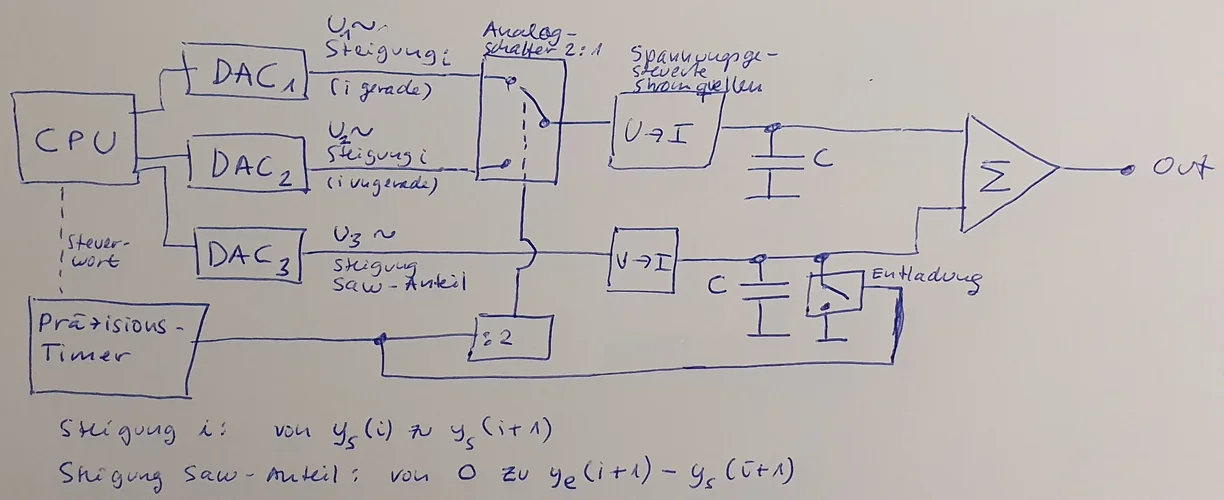 CPU
DAC1
U1 ~
Steigung i
(i gerade)
Analog-
schalter 2:1
Spannungsge-
steuerte
Stromquellen
U→I
C
Σ
Out
DAC2
U2 ~
Steigung i
(i ungerade)
DAC3
U3 ~
Steigung
Saw-Anteil
U→I
C
Entladung
Steuer-
wort
Präzisions-
Timer
:2
Steigung i: von ys(i) zu ys(i+1)
Steigung Saw-Anteil: von 0 zu ye(i+1) - ys(i+1)